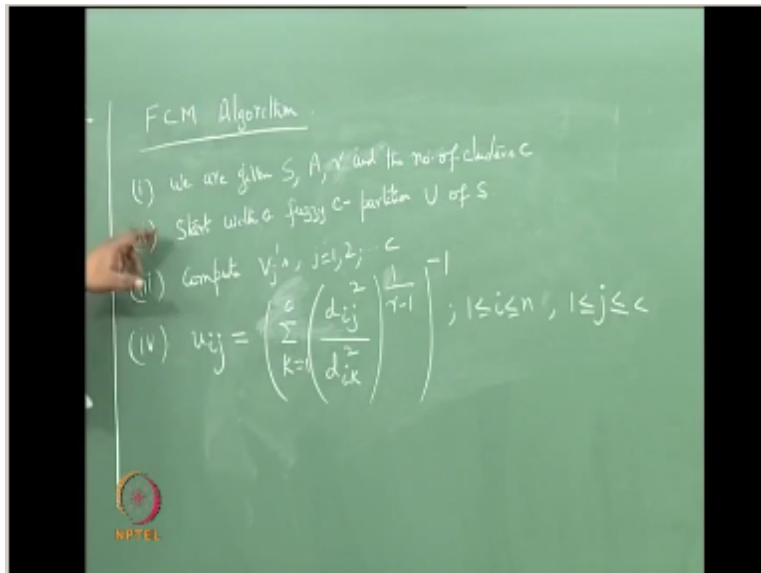 FCM Algorithm
(i) We are given S, A, r and the no. of clusters c
Start with a fuzzy c-partition U of S
(iii) Compute Vj's, j=1,2,... c
(iv) uij = ( Σ_{k=1}^{c} ( dij² / dik² )^{1/(r-1)} )^{-1} ; 1≤i≤n , 1≤j≤c
NPTEL